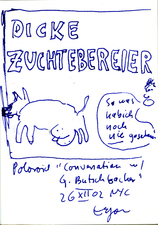 DICKE
ZUCHTEBEREIER
So was
hab ich
noch
nie gesehen!
Polaroid "Conversation w/
G. Butschbacher"
26 XII 02 NYC